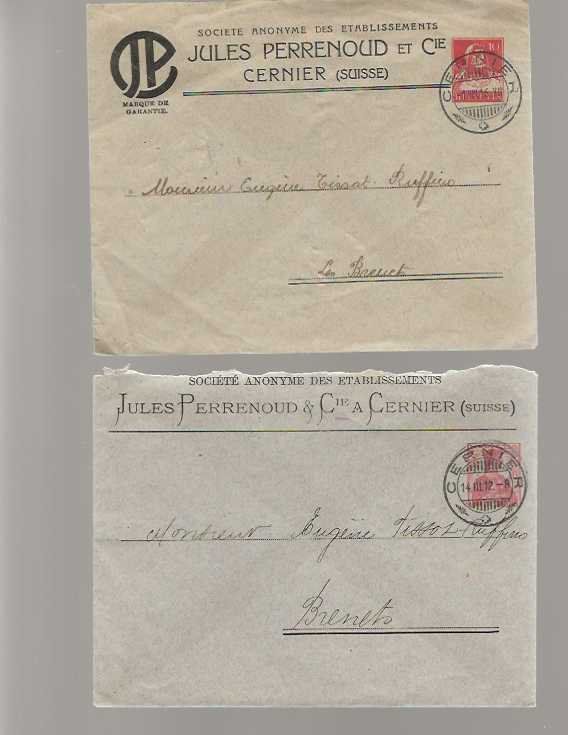 SOCIETE ANONYME DES ETABLISSEMENTS
JULES PERRENOUD ET CIE
CERNIER (SUISSE)
JP
MARQUE DE
GARANTIE.
10
CERNIER
Monsieur Eugène Tissot-Ruffino
Les Brenets
SOCIÉTÉ ANONYME DES ETABLISSEMENTS
JULES PERRENOUD & CIE A CERNIER (SUISSE)
CERNIER
14.III.12.-8
Monsieur Eugène Tissot-Ruffino
Brenets